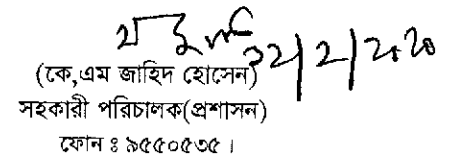 ২২/২/২০২০
(কে,এম জাহিদ হোসেন)
সহকারী পরিচালক(প্রশাসন)
ফোন ঃ ৯৫৫০৫৩৫।